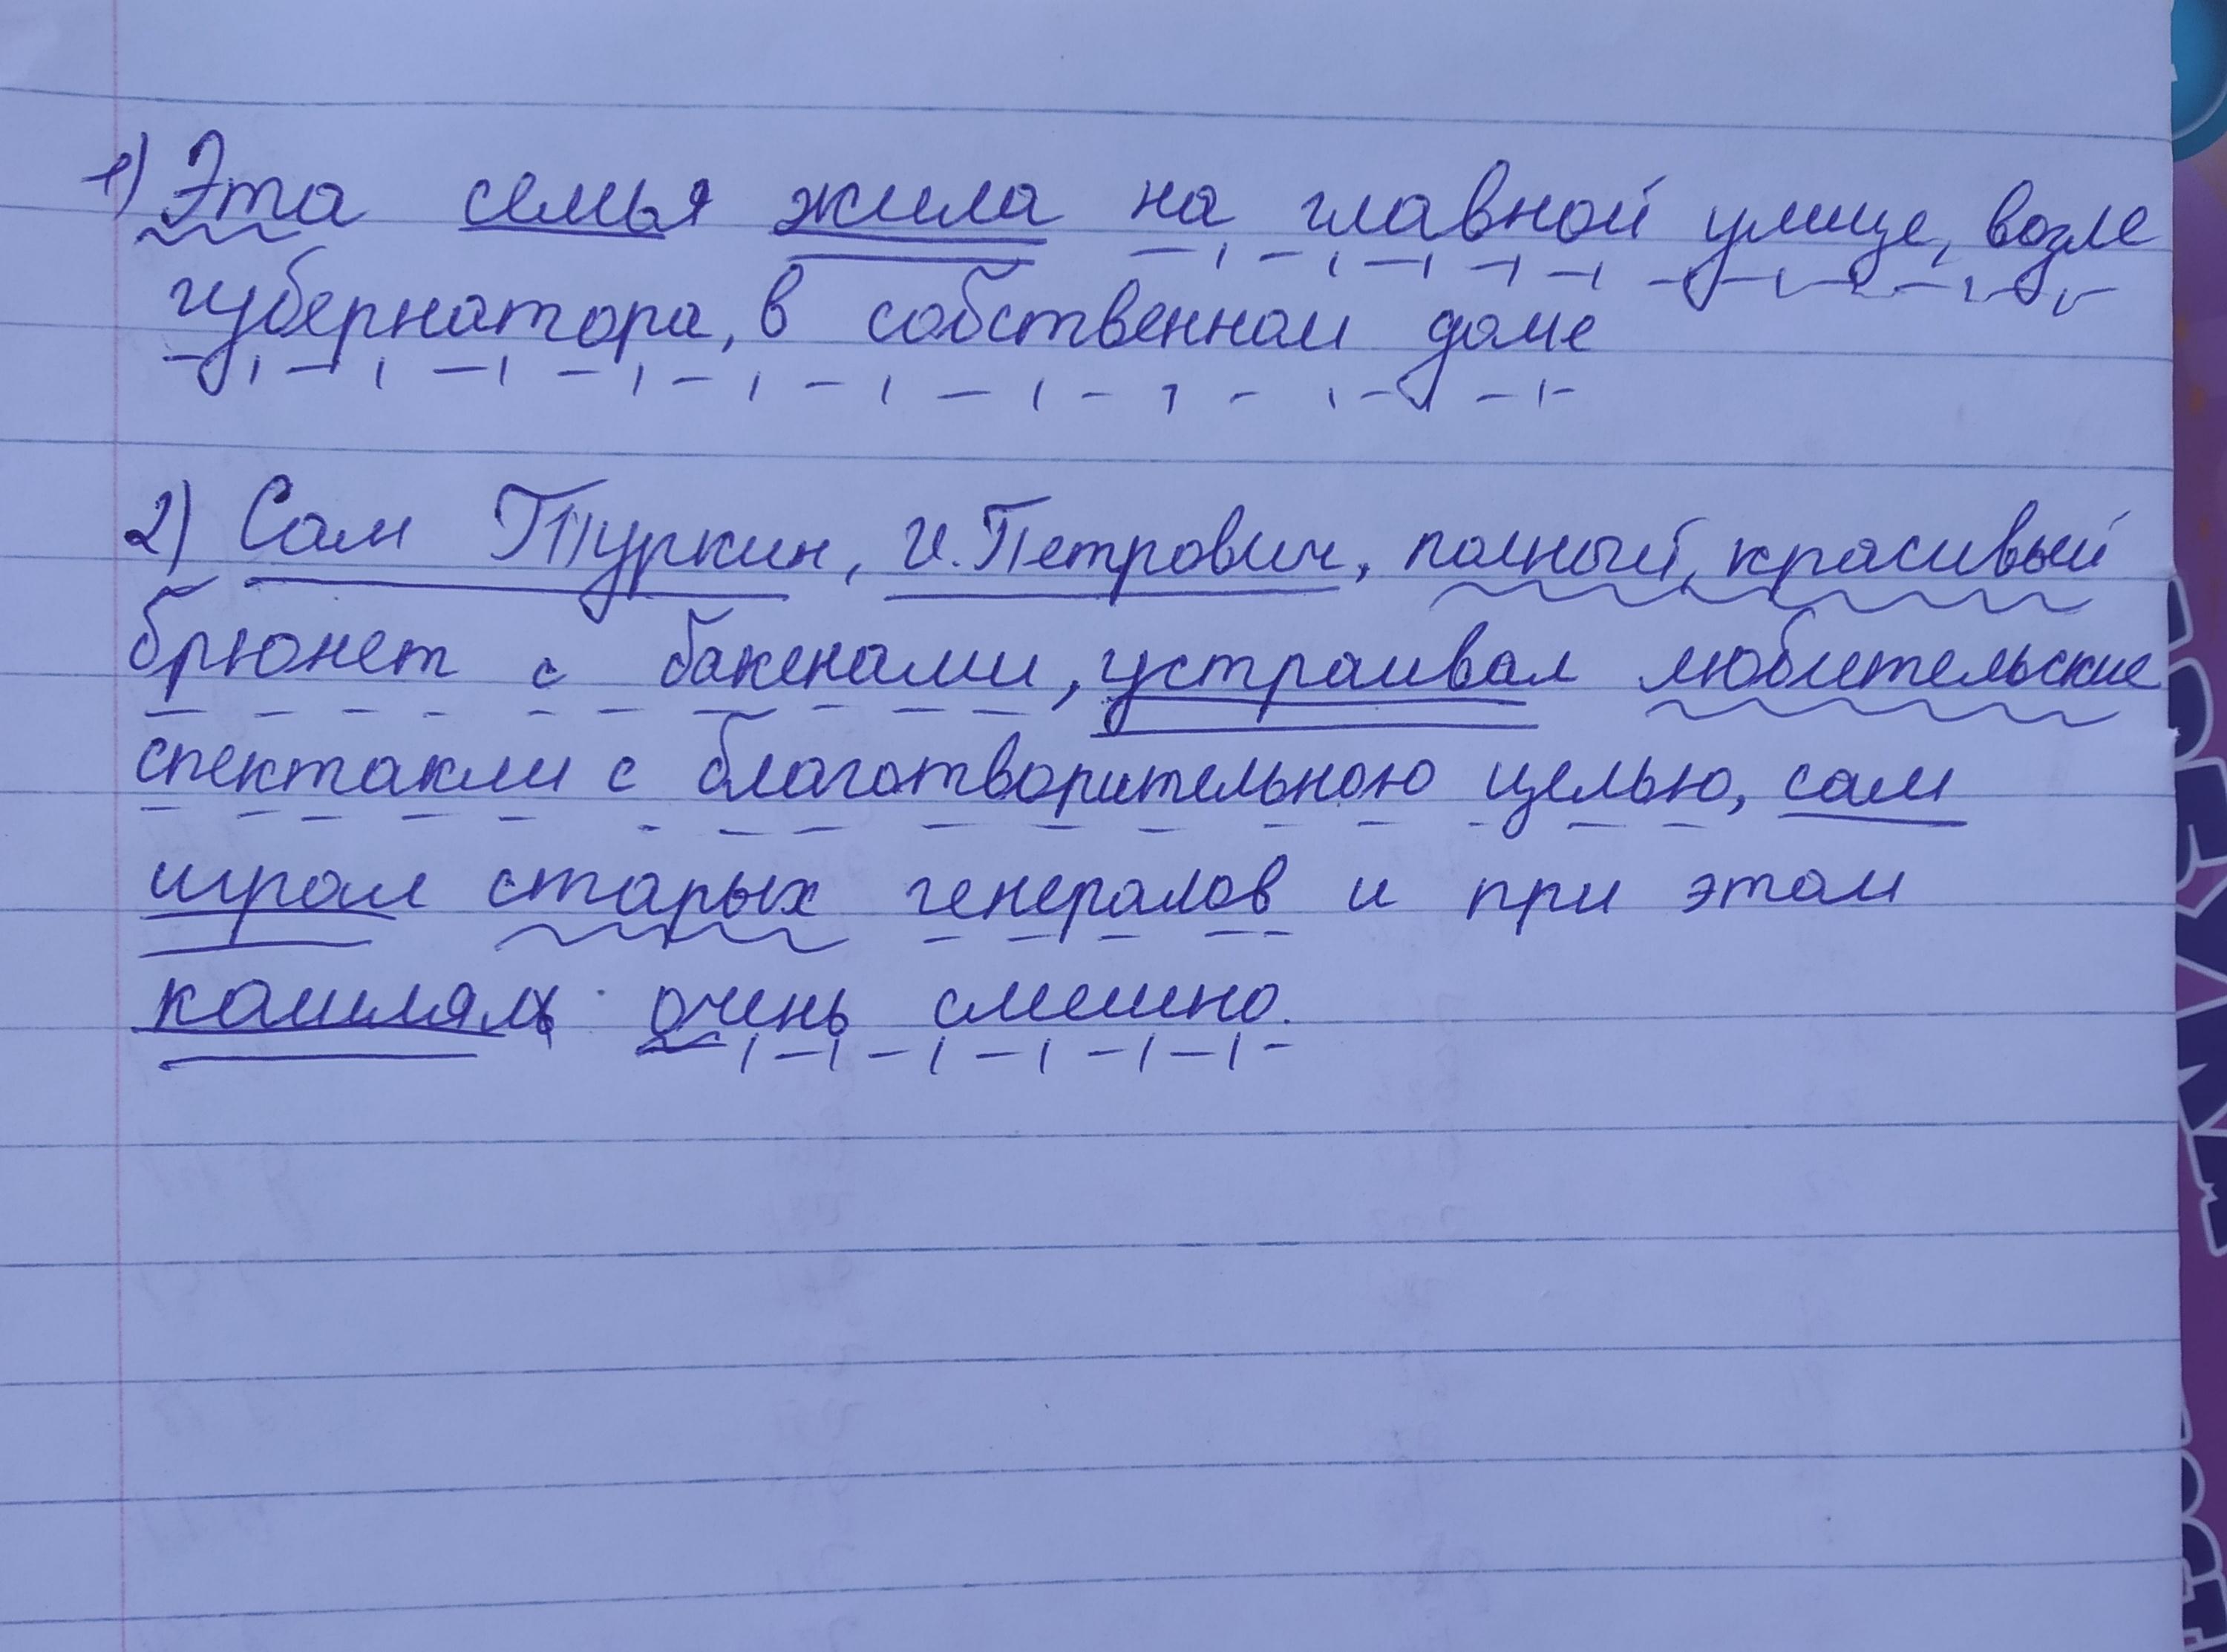 1) Эта семья жила на главной улице, возле
губернатора, в собственном доме
2) Сам Туркин, И. Петрович, полный, красивый
брюнет с бакенами, устраивал любительские
спектакли с благотворительною целью, сам
играл старых генералов и при этом
кашлял очень смешно.